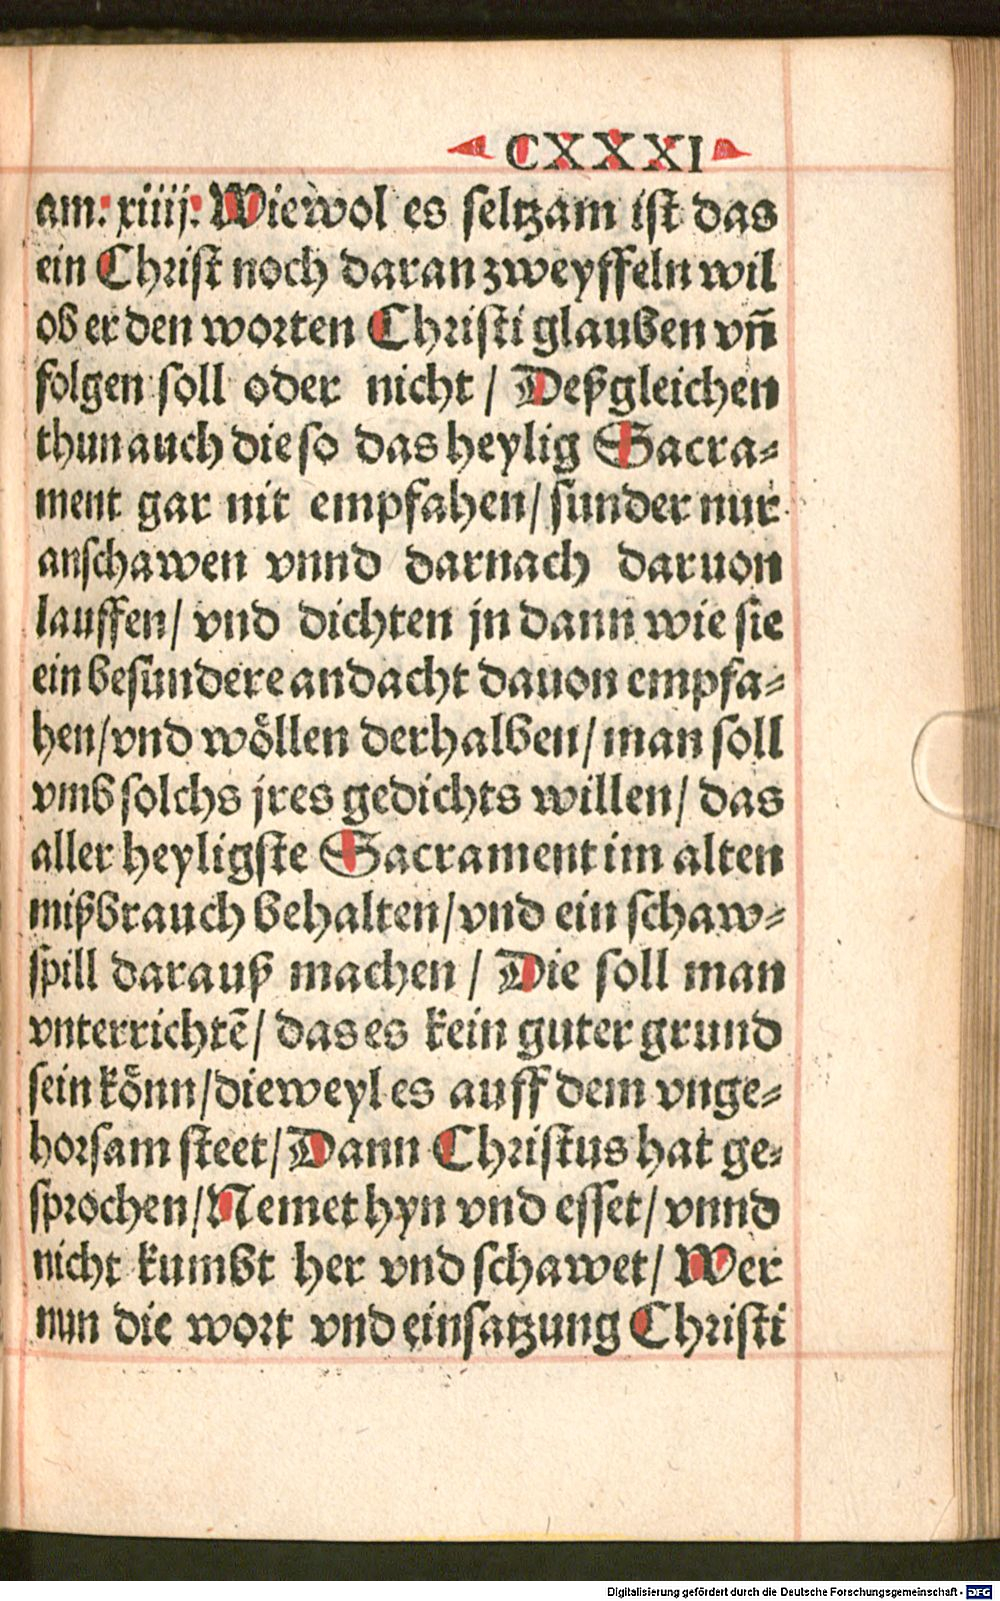 CXXXI
am: xiiij: Wiewol es seltzam ist das
ein Christ noch daran zweyffeln wil
ob er den worten Christi glauben vn̄
folgen soll oder nicht / Deßgleichen
thun auch die so das heylig Sacra⸗
ment gar nit empfahen / sunder nur
anschawen vnnd darnach daruon
lauffen / vnd dichten jn dann wie sie
ein besundere andacht dauon empfa⸗
hen / vnd wöllen derhalben / man soll
vmb solchs jres gedichts willen / das
aller heyligste Sacrament im alten
mißbrauch behalten / vnd ein schaw⸗
spill darauß machen / Die soll man
vnterrichtē / das es kein guter grund
sein könn / dieweyl es auff dem vnge⸗
horsam steet / Dann Christus hat ge⸗
sprochen / Nemet hyn vnd esset / vnnd
nicht kumbt her vnd schawet / Wer
nun die wort vnd einsatzung Christi
Digitalisierung gefördert durch die Deutsche Forschungsgemeinschaft - DFG